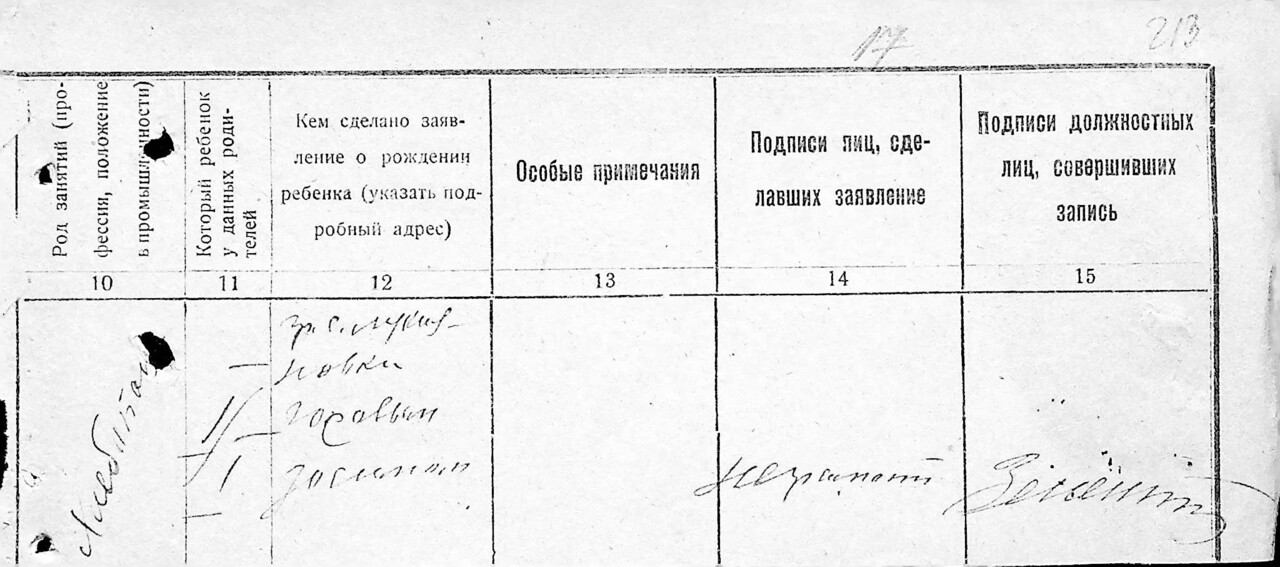 17
213
Род занятий (про-
фессия, положение
в промышленности)
Который ребенок
у данных роди-
телей
Кем сделано заяв-
ление о рождении
ребенка (указать под-
робный адрес)
Особые примечания
Подписи лиц, сде-
лавших заявление
Подписи должностных
лиц, совершивших
запись
10
11
12
13
14
15
гр. с. Лукья-
новки
неграмотн